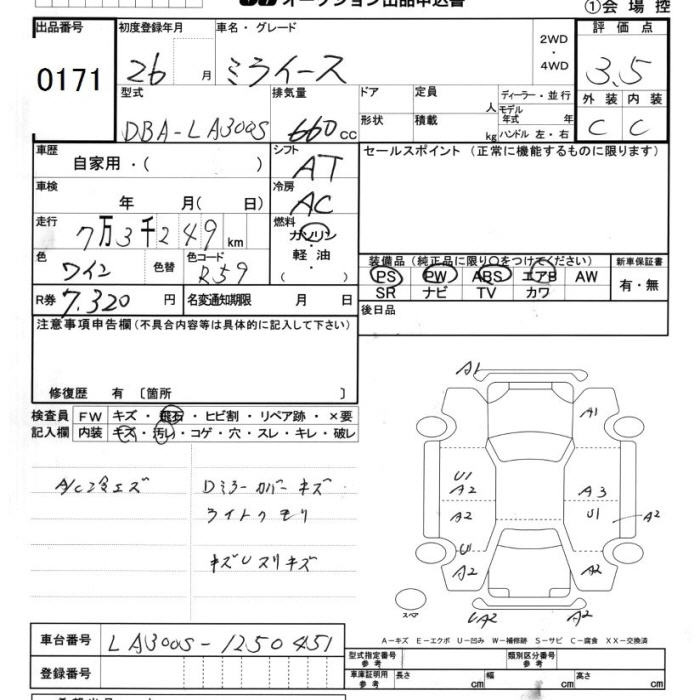 オークション出品申込書
①会場控
出品番号
0171
初度登録年月
26 月
車名・グレード
ミライース
2WD
・
4WD
評価点
3.5
外装 内装
C C
型式
DBA-LA300S
排気量
660 cc
ドア
形状
定員
人
積載
kg
ディーラー・並行
モデル年式 年
ハンドル 左・右
車歴
自家用・( )
シフト
AT
セールスポイント (正常に機能するものに限ります)
車検
年 月( 日)
冷房
AC
走行
7万3千249 km
燃料
ガソリン
軽油
( ・ )
色
ワイン
色替
色コード
R59
装備品 (純正品に限り○をつけてください)
新車保証書
PS PW ABS エアB AW
有・無
SR ナビ TV カワ
R券 7,320 円
名変通知期限 月 日
後日品
注意事項申告欄(不具合内容等は具体的に記入して下さい)
修復歴 有 〔箇所 〕
検査員
記入欄
FW キズ・飛石・ヒビ割・リペア跡・×要
内装 キズ・汚レ・コゲ・穴・スレ・キレ・破レ
Dミラーカバーキズ
ライトクモリ
A1
A1
U1
A2
A3
A2
U1
A2
U
A2
A2
UA2
A2
スペア
A-キズ E-エクボ U-凹み W-補修跡 S-サビ C-腐食 XX-交換済
車台番号 LA300S-1250451
登録番号
型式指定番号
参考
類別区分番号
参考
車庫証明用
参考
長さ cm 幅 cm 高さ cm